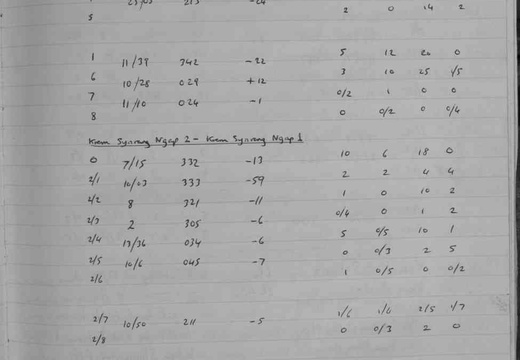 213 -24
5 2 0 14 2
1 11/39 342 -22 5 12 20 0
6 10/28 029 +12 3 10 25 4/5
7 11/10 024 -1 0/2 1 0 0
8 0 0/2 0 0/4
Ngap 2 - Ngap 1
0 7/15 332 -13 10 6 18 0
2/1 10/03 333 -59 2 2 4 4
2/2 8 321 -11 1 0 10 2
2/3 2 305 -6 0/4 0 1 2
2/4 13/36 034 -6 5 0/5 10 1
2/5 10/6 045 -7 0 0/3 2 5
2/6 1 0/5 0 0/2
2/7 10/50 211 -5 1/6 1/6 2/5 1/7
2/8 0 0/3 2 0